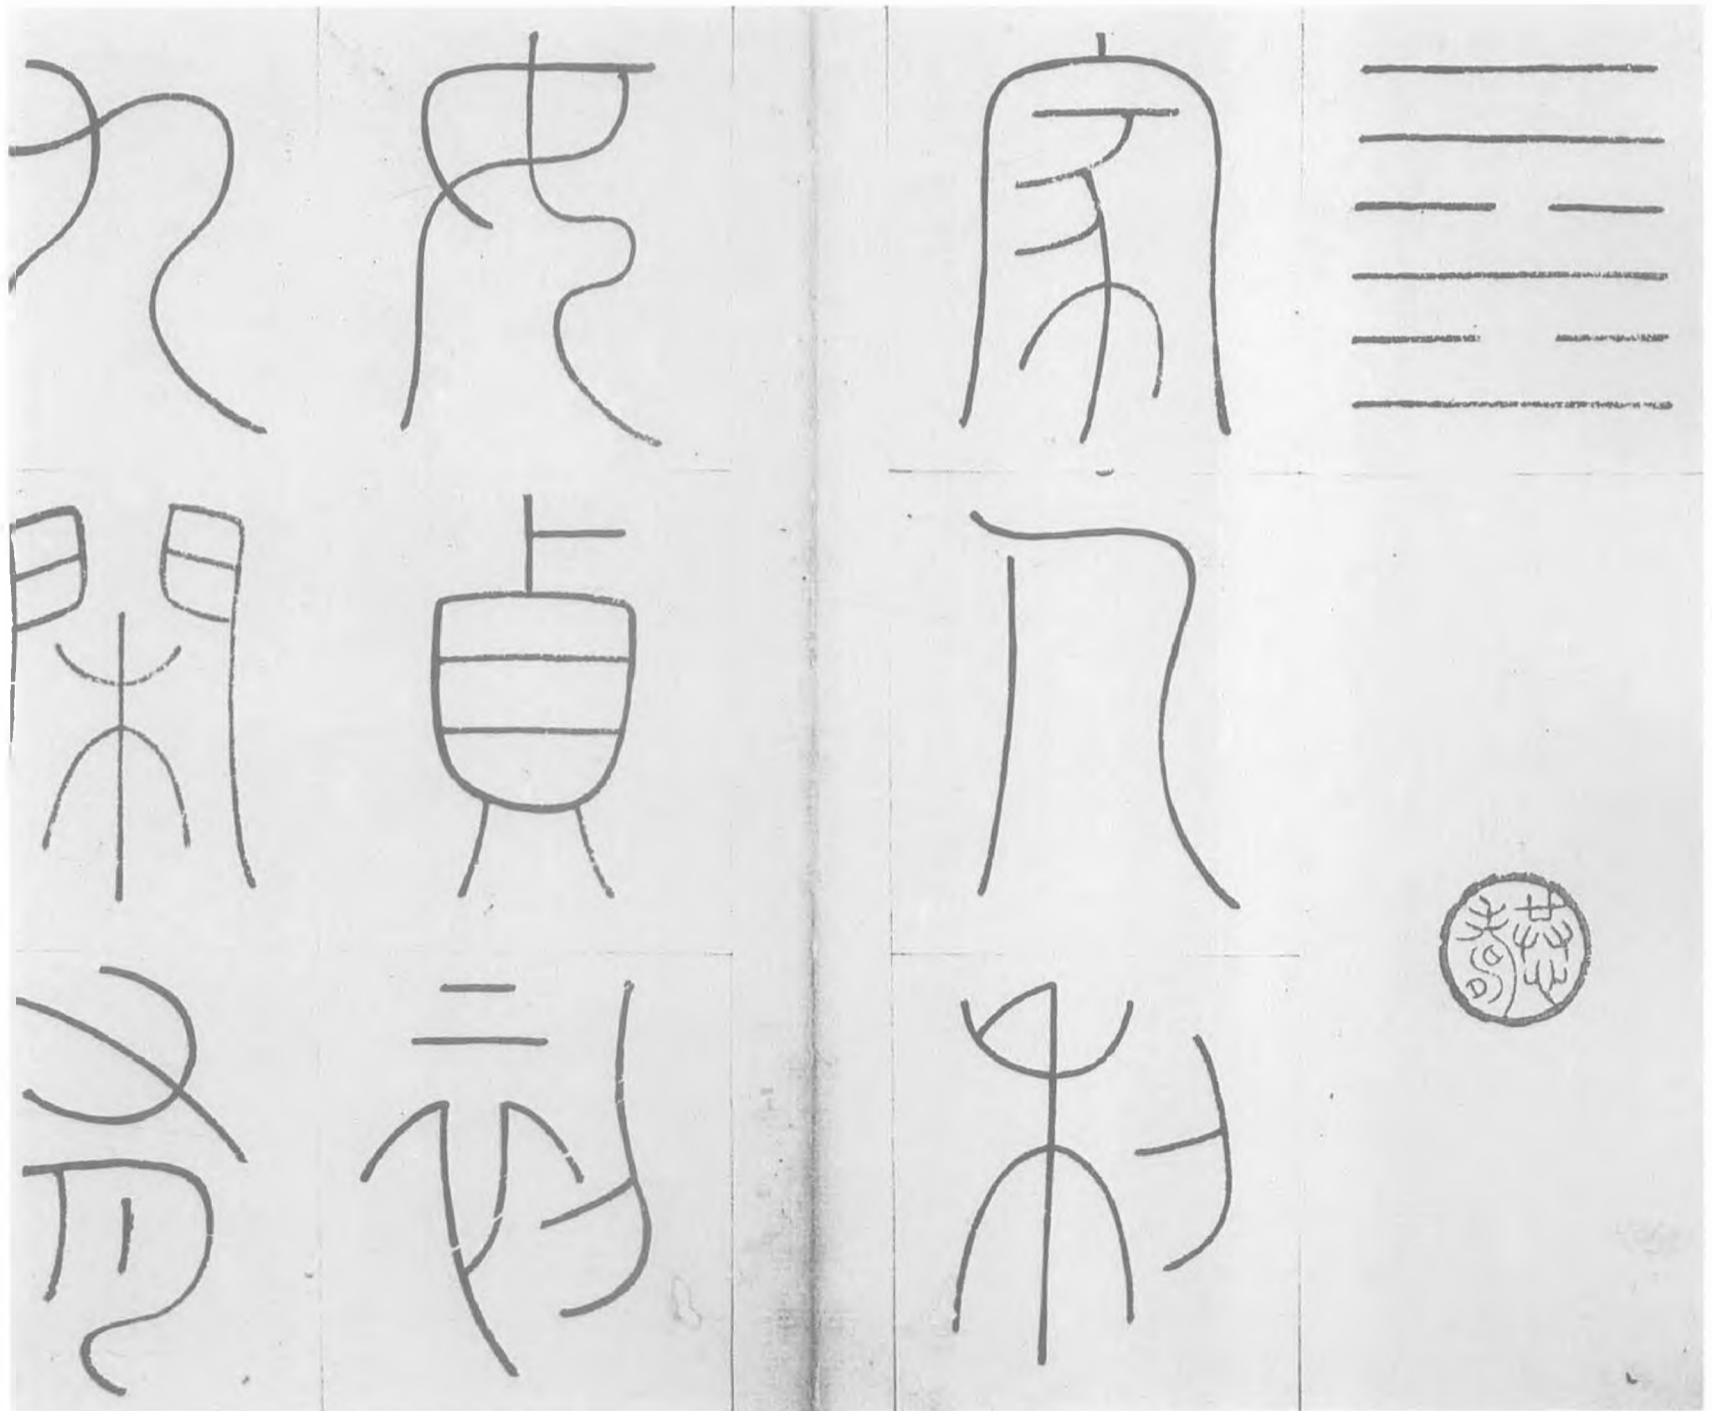 ䷤
家人利
女貞初
九閑有